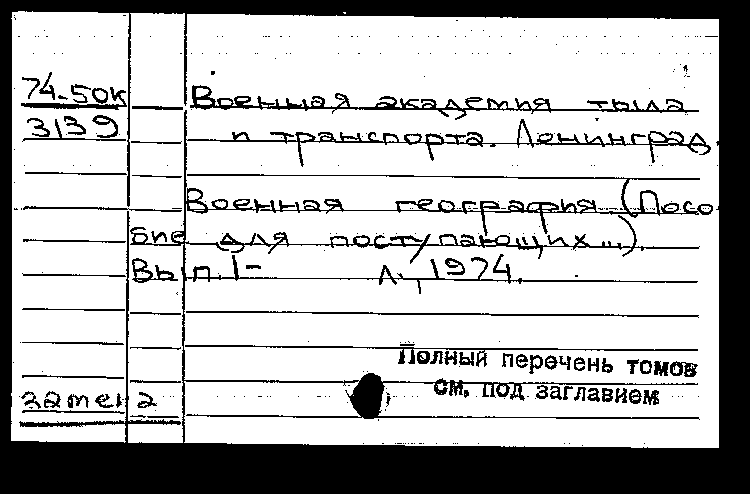 1
74-50к Военная академия тыла
3139 и транспорта. Ленинград.
Военная география (Посо
бие для поступающих...).
Вып. 1- Л., 1974.
Полный перечень томов
см. под заглавием
замена